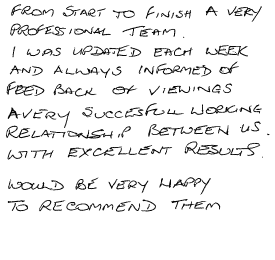 FROM START TO FINISH A VERY
PROFESSIONAL TEAM.
I WAS UPDATED EACH WEEK
AND ALWAYS INFORMED OF
FEED BACK OF VIEWINGS
A VERY SUCCESFULL WORKING
RELATIONSHIP BETWEEN US.
WITH EXCELLENT RESULTS.
WOULD BE VERY HAPPY
TO RECOMMEND THEM